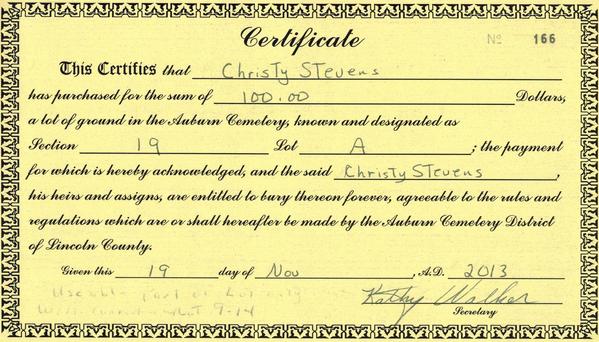 Certificate № 166
This Certifies that Christy Stevens
has purchased for the sum of 100.00 Dollars,
a lot of ground in the Auburn Cemetery, known and designated as
Section 19 Lot A ; the payment
for which is hereby acknowledged, and the said Christy Stevens,
his heirs and assigns, are entitled to bury thereon forever, agreeable to the rules and
regulations which are or shall hereafter be made by the Auburn Cemetery District
of Lincoln County.
Given this 19 day of Nov, A.D. 2013
Kathy Walker
Secretary
9-14